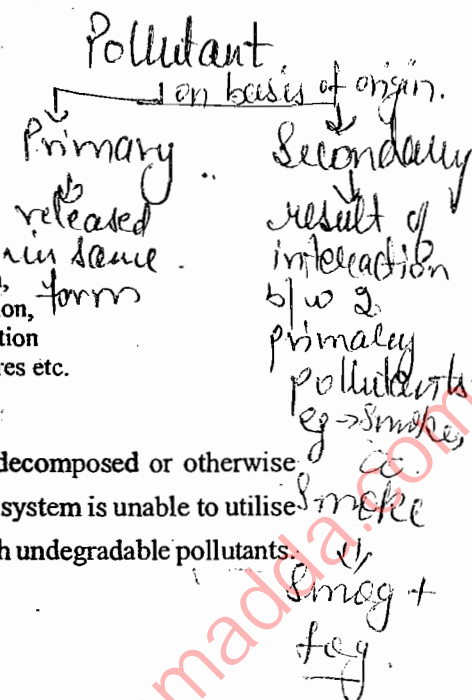 Pollutant
on basis of origin.
Primary
released
in same
form
Secondary
result of
interaction
b/w 2
primary
pollutants
eg → Smoke,
Smoke
Smog +
fog.
on,
tion
res etc.
decomposed or otherwise
system is unable to utilise
h undegradable pollutants.
madda.com